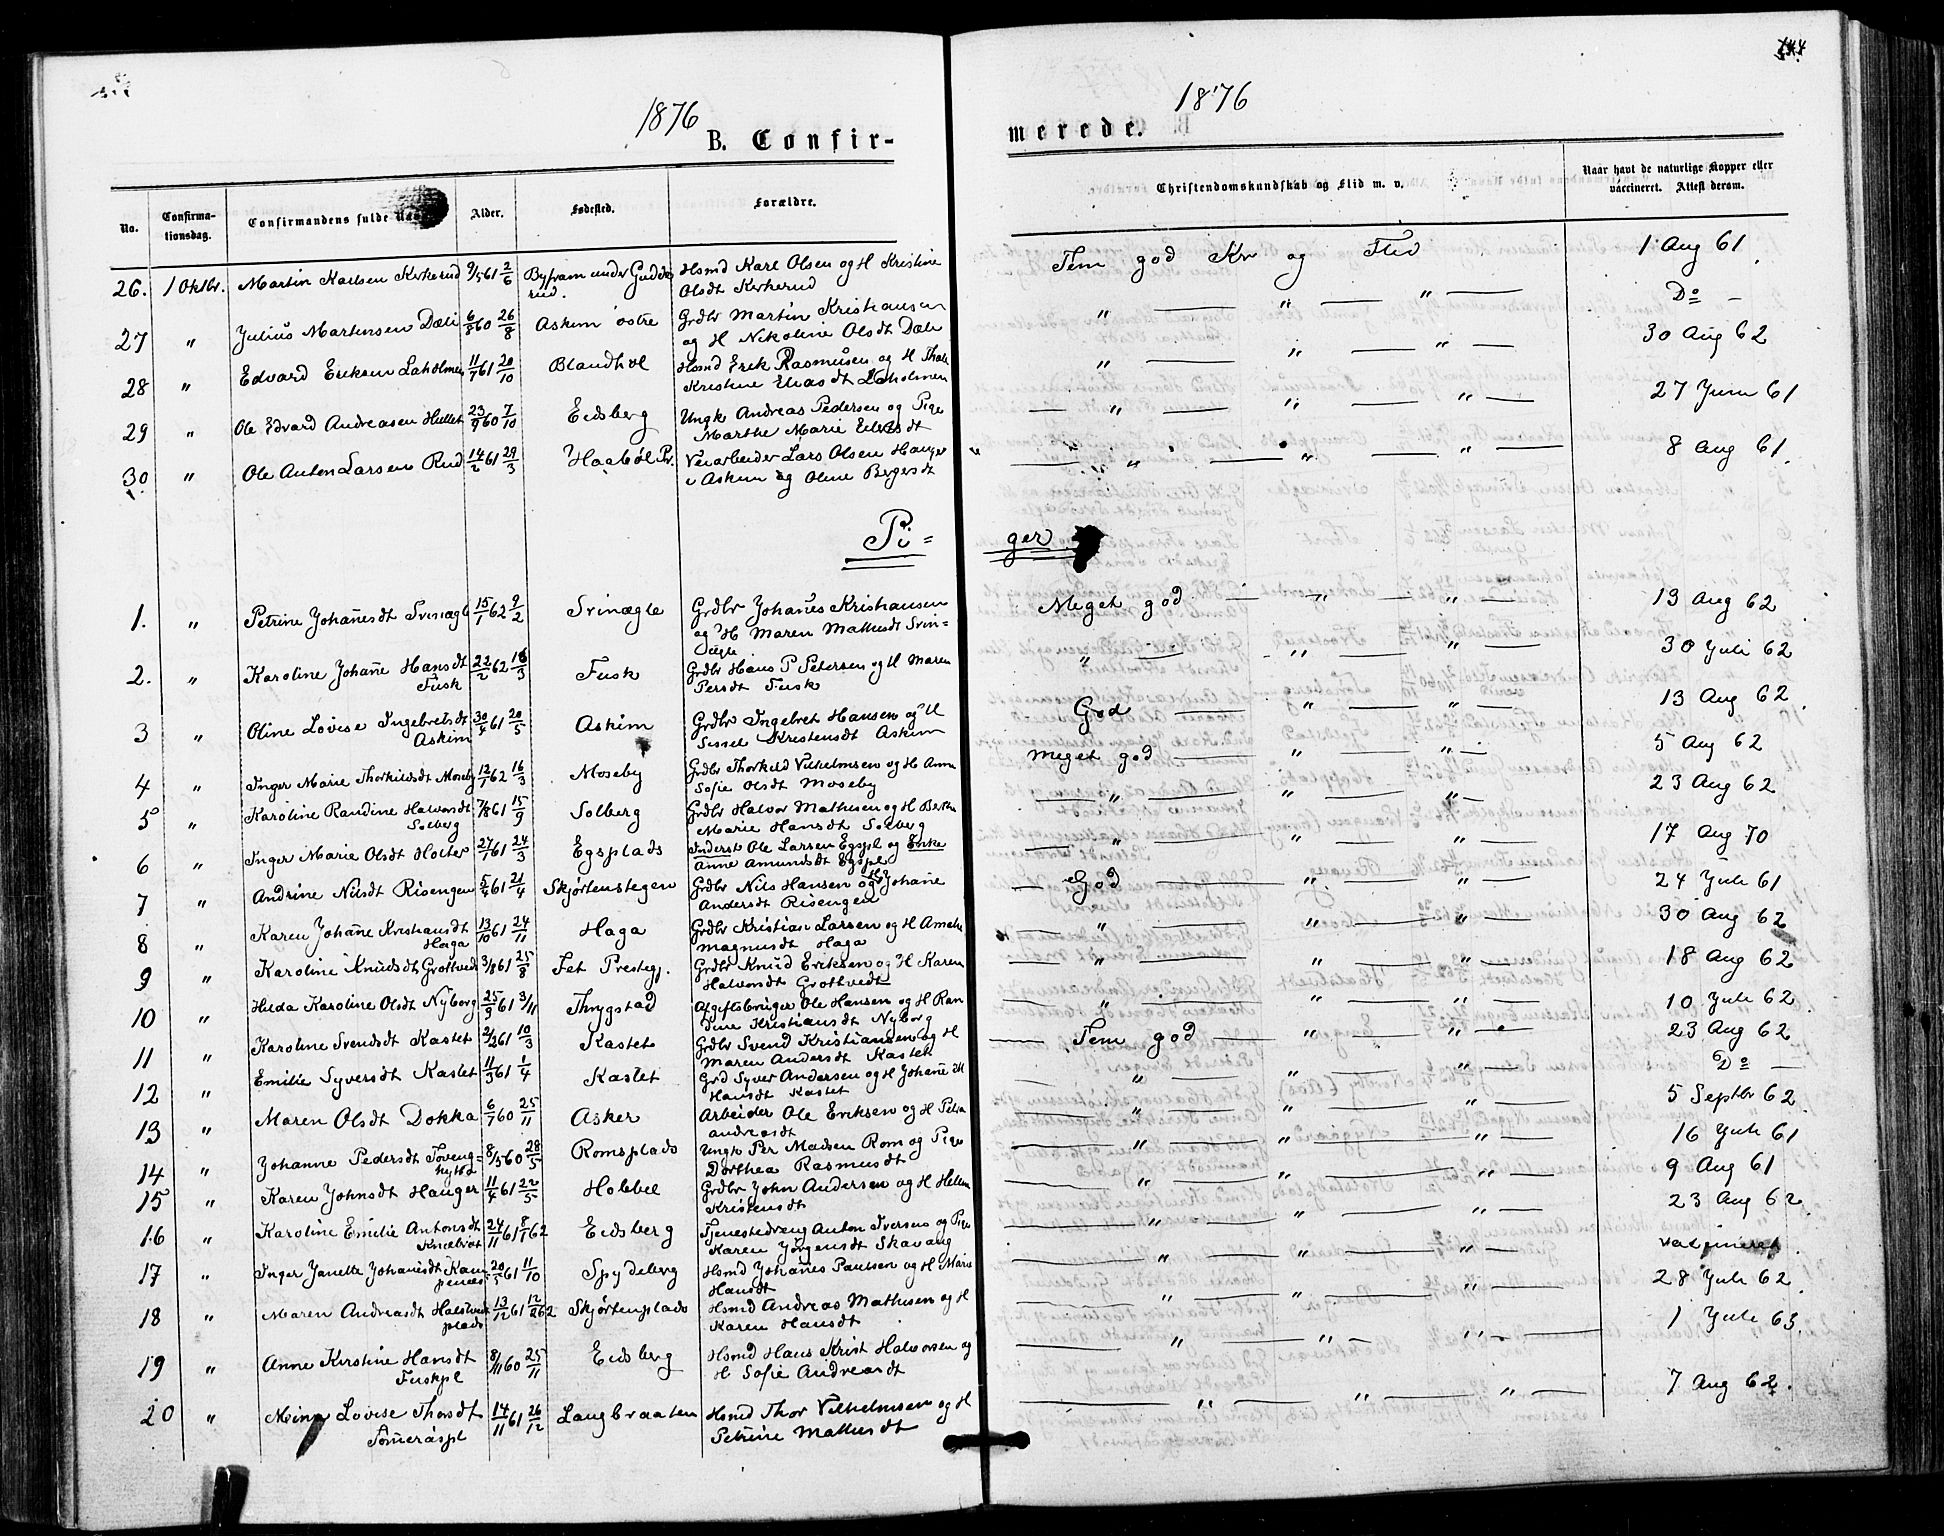 1876
B. Confir-
No.
Confirma-
tionsdag.
Confirmandens fulde
Alder.
Fødested.
Forældre.
26. 1 Oktbr. Martin Karlsen Kirkerud 9/5 61 2/6 Byfram under Gudde Hsmd Karl Olsen og H Kristine
rud. Olsdt Kirkerud
27 " Julius Martinsen Dæli 6/8 60 26/8 Askim østre Grdbr Martin Kristiansen
og H Nikoline Olsdt Dæli
28 " Edvard Eriksen Laholmen 11/7 61 20/10 Blandhol Hsmd Erik Rasmusen og H Thale
Kristine Eliasdt Laholmen
29 " Ole Edvard Andreasen Hullet 23/9 60 7/10 Eidsberg Ungk Andreas Pedersen og Pige
Marthe Marie
30 " Ole Anton Larsen Rud 14/2 61 29/3 Haabøl Pr. Veiarbeider Lars Olsen Hauger
i Askim og Oline Bergersdt
Pi =
1. " Petrine Johañesdt Svinægle 15/1 62 9/2 Svinægle Grdbr Johañes Kristiansen
og H Maren Mathisdt Svin=
ægle
2. " Karoline Johañe Hansdt 22/2 62 16/3 Fusk Grdbr Hans P Petersen og H Maren
Fusk Persdt Fusk
3 " Oline Lovise Ingebretsdt 30/4 61 20/5 Askim Grdbr Ingebret Hansen og H
Askim Sissel Kristensdt Askim
4 " Inger Marie Thorkildsdt Moseby 12/1 62 16/3 Moseby Grdbr Thorkild Vilhelmsen og H Anne
Sofie Olsdt Moseby
5 " Karoline Randine Halvorsdt 7/8 61 15/9 Solberg Grdbr Halvor Mathisen og H Berthe
Solberg Marie Hansdt Solberg
6 " Inger Marie Olsdt Holter 27/1 61 24/3 Egsplads Inderst Ole Larsen Egspl og Enke
Anne Amundsdt Egspl
7 " Andrine Nilsdt Risengen 5/4 61 21/4 Skjørtenstegen Grdbr Nils Hansen og H Johañe
Andersdt Risengen
8 " Karen Johañe Kristiansdt 13/10 61 24/11 Haga Grdbr Kristian Larsen og H Amalie
Haga Magnusdt Haga
9 " Karoline Knudsdt Grottvedt 3/8 61 25/8 Fet Prestegj. Grdbr Knud Eriksen og H Karen
Halvorsdt Grottvedt
10 " Hilda Karoline Olsdt Nyborg 25/9 61 3/11 Thrygstad Afgiftsbruger Ole Hansen og H Ran
dine Kristiansdt Nyborg
11 " Karoline Svendsdt Kastet 2/2 61 10/3 Kastet Grdbr Svend Kristiansen og H
Maren Andersdt Kastet
12 " Emilie Syversdt Kastet 11/3 61 1/4 Kastet Grd Syver Andersen og H Johañe M
Hansdt Kastet
13 " Maren Olsdt Dokka 6/7 60 25/11 Asker Arbeider Ole Eriksen og H Petra
Andreasdt
14 " Johanne Pedersdt Toveng= 8/3 60 28/5 Romsplads Ungk Per Madsen Rom og Pige
hytta Dorthea Rasmusdt
15 " Karen Johnsdt Hauger 11/4 61 22/5 Holbæl Grdbr John Andersen og H Helene
Kristensdt
16 " Karoline Emilie Antonsdt 24/11 61 8/1 62 Eidsberg Tjenestedreng Anton Iversen og Pige
Karen Jörgensdt Skavang
17 " Inger Janette Johañesdt Kam 20/5 61 11/10 Spydeberg Hsmd Johañes Paulsen og H Marie
penes Hansdt
18 " Maren Andreasdt Halstvedt 13/12 61 12/2 62 Skjørtenplads Hsmd Andreas Mathisen og H
plads Karen Hansdt
19 " Anne Kirstine Hansdt 8/11 60 25/11 Eidsberg Hsmd Hans Krist Halvorsen og
Fuskpl H Sofie Andreasdt
20 " Mina Lovise Thorsdt 14/11 61 26/12 Langbraaten Hsmd Thor Vilhelmsen og H
Sømeraspl Petrine Mathisdt
144
1876
merede.
Christendomskundskab og Flid m. v.
Naar havt de naturlige Kopper eller
vaccineret. Attest derom.
Tem god Kr og Flid 1 Aug 61
" " " Do
" " " 30 Aug 62
" " " 27 Juni 61
" " " 8 Aug 61.
ger
Meget god " " 13 Aug 62
" " " 30 Juli 62
God " " 13 Aug 62
Meget god " " 5 Aug 62
" " " 23 Aug 62
" " " 17 Aug 70
God " " 24 Juli 61
" " " 30 Aug 62
" " " 18 Aug 62
" " " 10 Juli 62
Tem god " " 23 Aug 62
" " " Do
" " " 5 Septbr 62
" " " 16 Juli 61
" " " 9 Aug 61
" " " 23 Aug 62
" " " vaccineret.
" " " 28 Juli 62
" " " 1 Juli 63.
" " " 7 Aug 62.